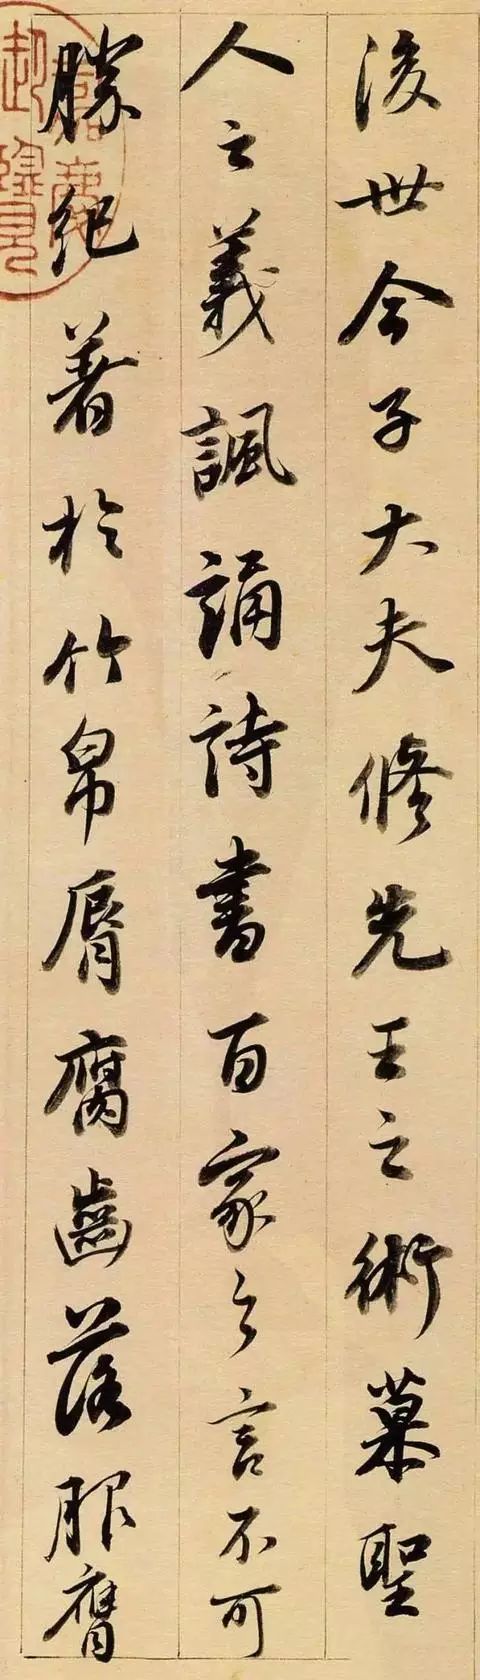 後世今子大夫修先王之術慕聖
人之義諷誦詩書百家之言不可
勝紀著於竹帛脣腐齒落服膺